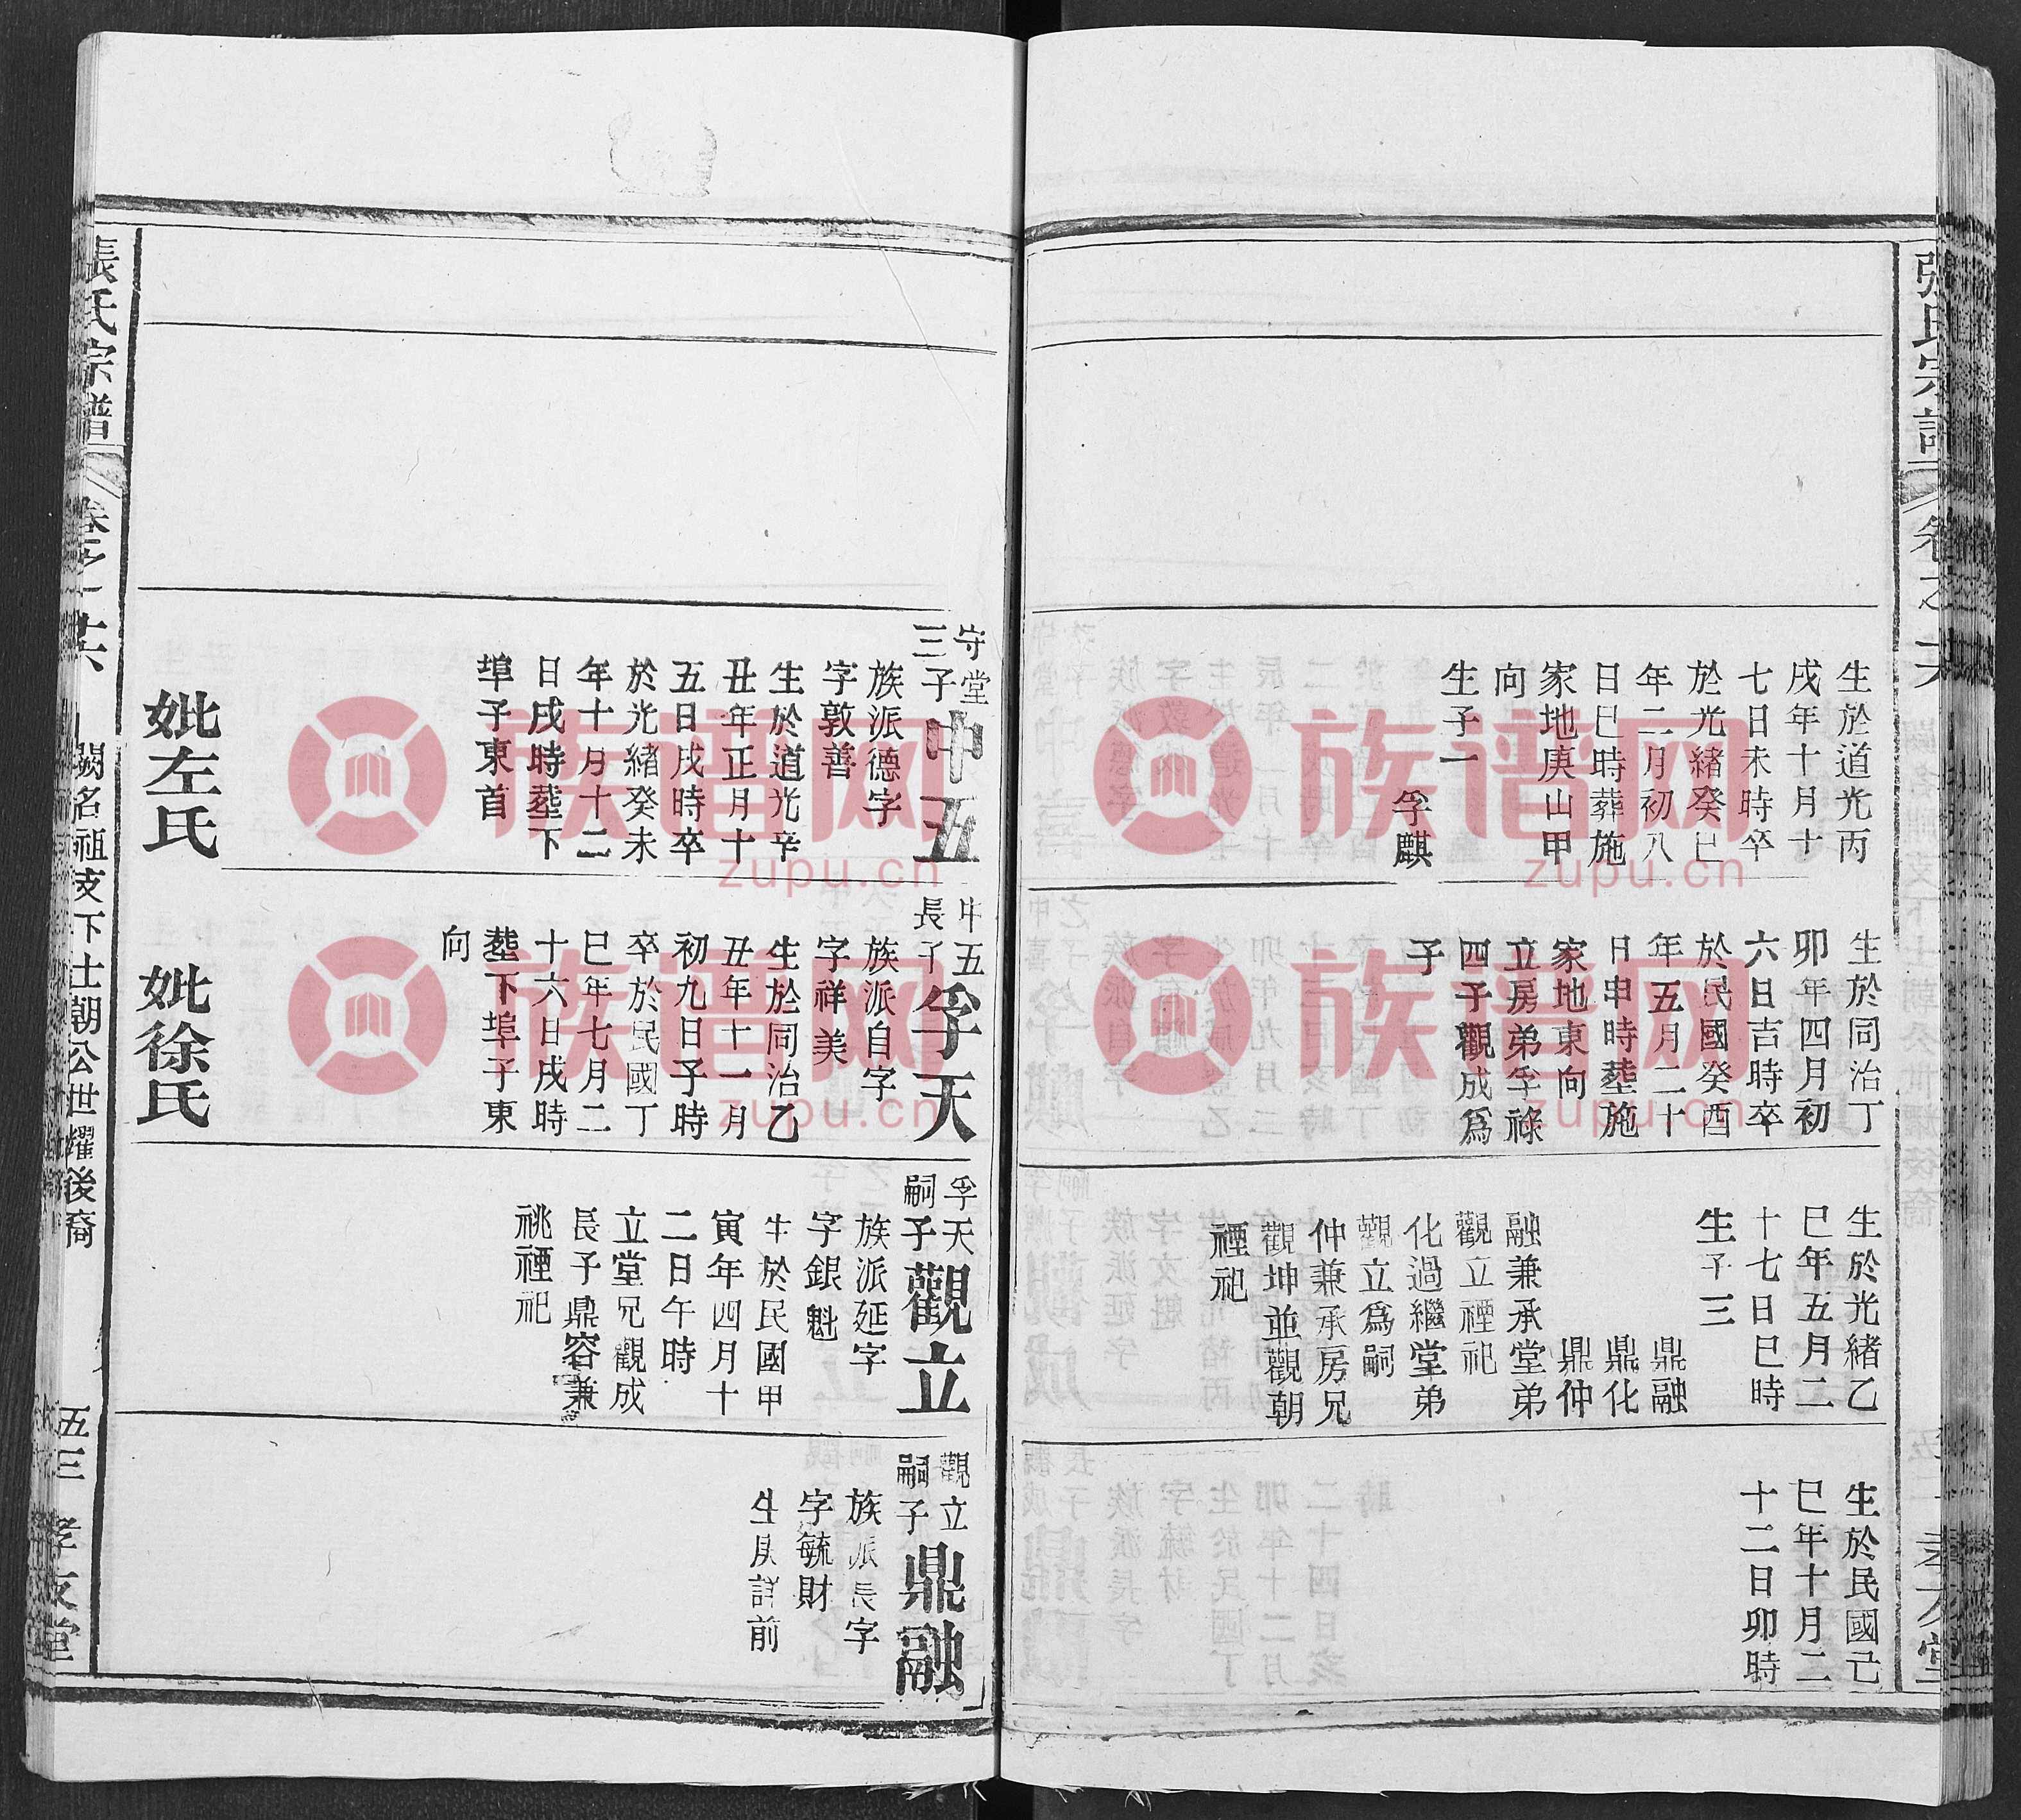 張氏宗譜
卷之十六
生於道光丙
戌年十月十
七日未時卒
於光緒癸巳
年二月初八
日巳時葬施
家地庚山甲
向
生子一
孚麒
生於同治丁
卯年四月初
六日吉時卒
於民國癸酉
年五月二十
日申時塟施
家地東向
立房弟孚祿
四子觀成爲
子
生於光緒乙
巳年五月二
十七日巳時
生子三
鼎融
鼎化
鼎仲
融兼承堂弟
觀立禋祀
化過繼堂弟
觀立爲嗣
仲兼承房兄
觀坤並觀朝
禋祀
生於民國己
巳年十月二
十二日卯時
守堂
三子
中五
族派德字
字敦善
生於道光辛
丑年正月十
五日戌時卒
於光緒癸未
年十月十二
日戌時塟下
埠子東首
妣左氏
中五
長子
孚天
族派自字
字祥美
生於同治乙
丑年十一月
初九日子時
卒於民國丁
巳年七月二
十六日戌時
塟下埠子東
向
妣徐氏
孚天
嗣子
觀立
族派延字
字銀魁
生於民國甲
寅年四月十
二日午時
立堂兄觀成
長子鼎容兼
祧禋祀
觀立
嗣子
鼎融
族派長字
字毓財
生庚詳前
張氏宗譜
卷之十六
闕名祖支下士朝公世耀後裔
五三
孝友堂
族谱网
zupu.cn
族谱网
zupu.cn
族谱网
zupu.cn
族谱网
zupu.cn